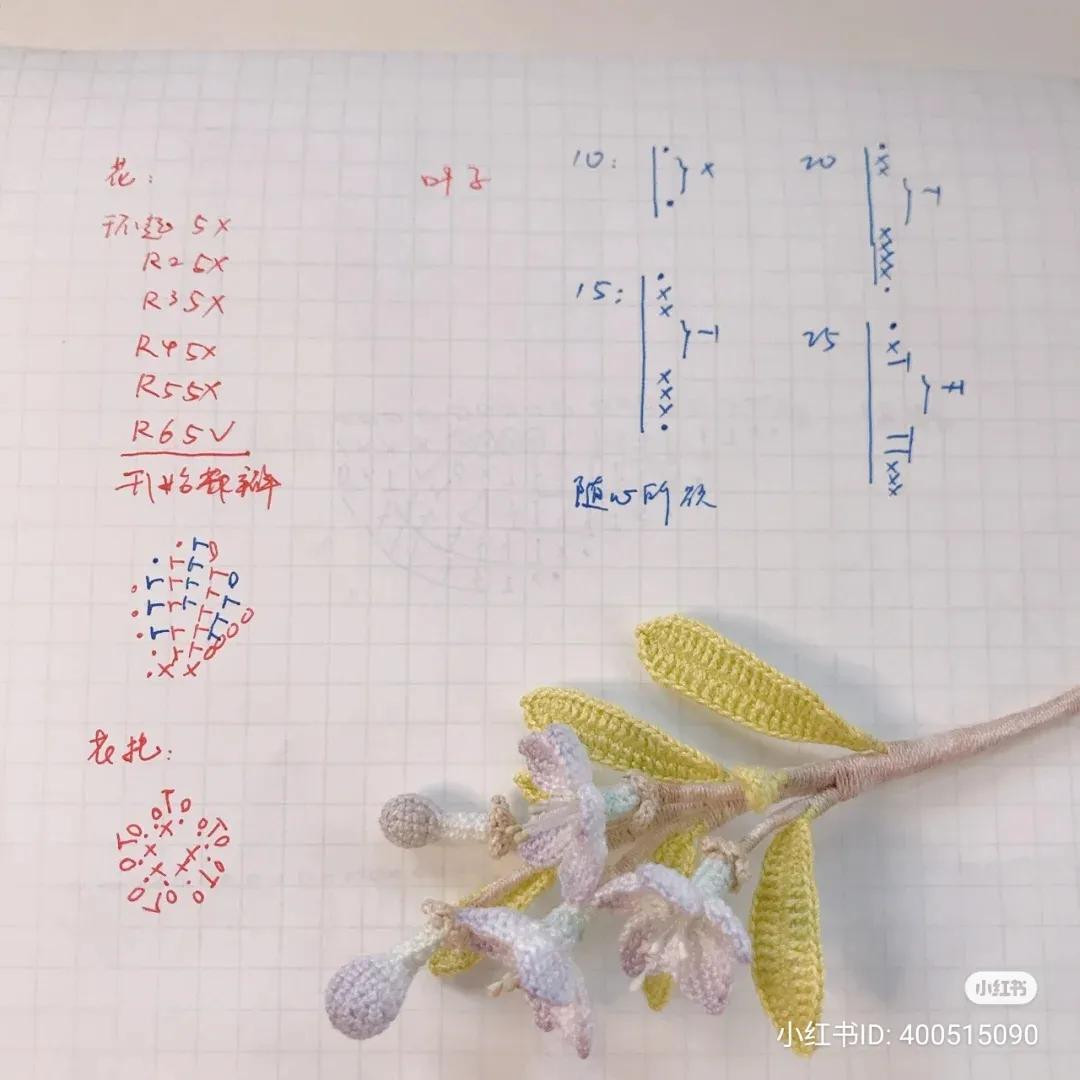 花：
环起 5X
R2 5X
R3 5X
R4 5X
R5 5X
R6 5V
开始花瓣
花托：
叶子
10：
X
15：
20
25
随心所欲
小红书
小红书ID: 400515090